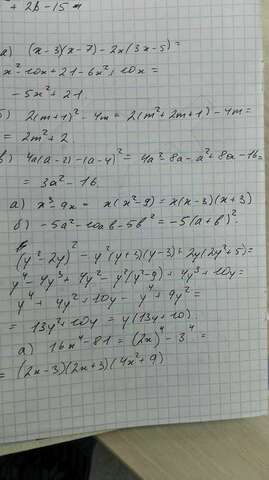 + 2b - 15m
а) (x-3)(x-7) - 2x(3x-5) =
x² - 10x + 21 - 6x² + 10x =
-5x² + 21
б) 2(m+1)² - 4m = 2(m² + 2m + 1) - 4m =
= 2m² + 2.
в) 4a(a-2) - (a-4)² = 4a² - 8a - a² + 8a - 16 =
= 3a² - 16.
а) x³ - 9x = x(x² - 9) = x(x-3)(x+3)
б) -5a² - 10ab - 5b² = -5(a+b)².
(y² - 2y)² - y²(y+3)(y-3) + 2y(2y²+5) =
y⁴ - 4y³ + 4y² - y²(y²-9) + 4y³ + 10y =
y⁴ + 4y² + 10y - y⁴ + 9y² =
= 13y² + 10y = y(13y + 10).
а) 16x⁴ - 81 = (2x)⁴ - 3⁴ =
= (2x-3)(2x+3)(4x²+9)